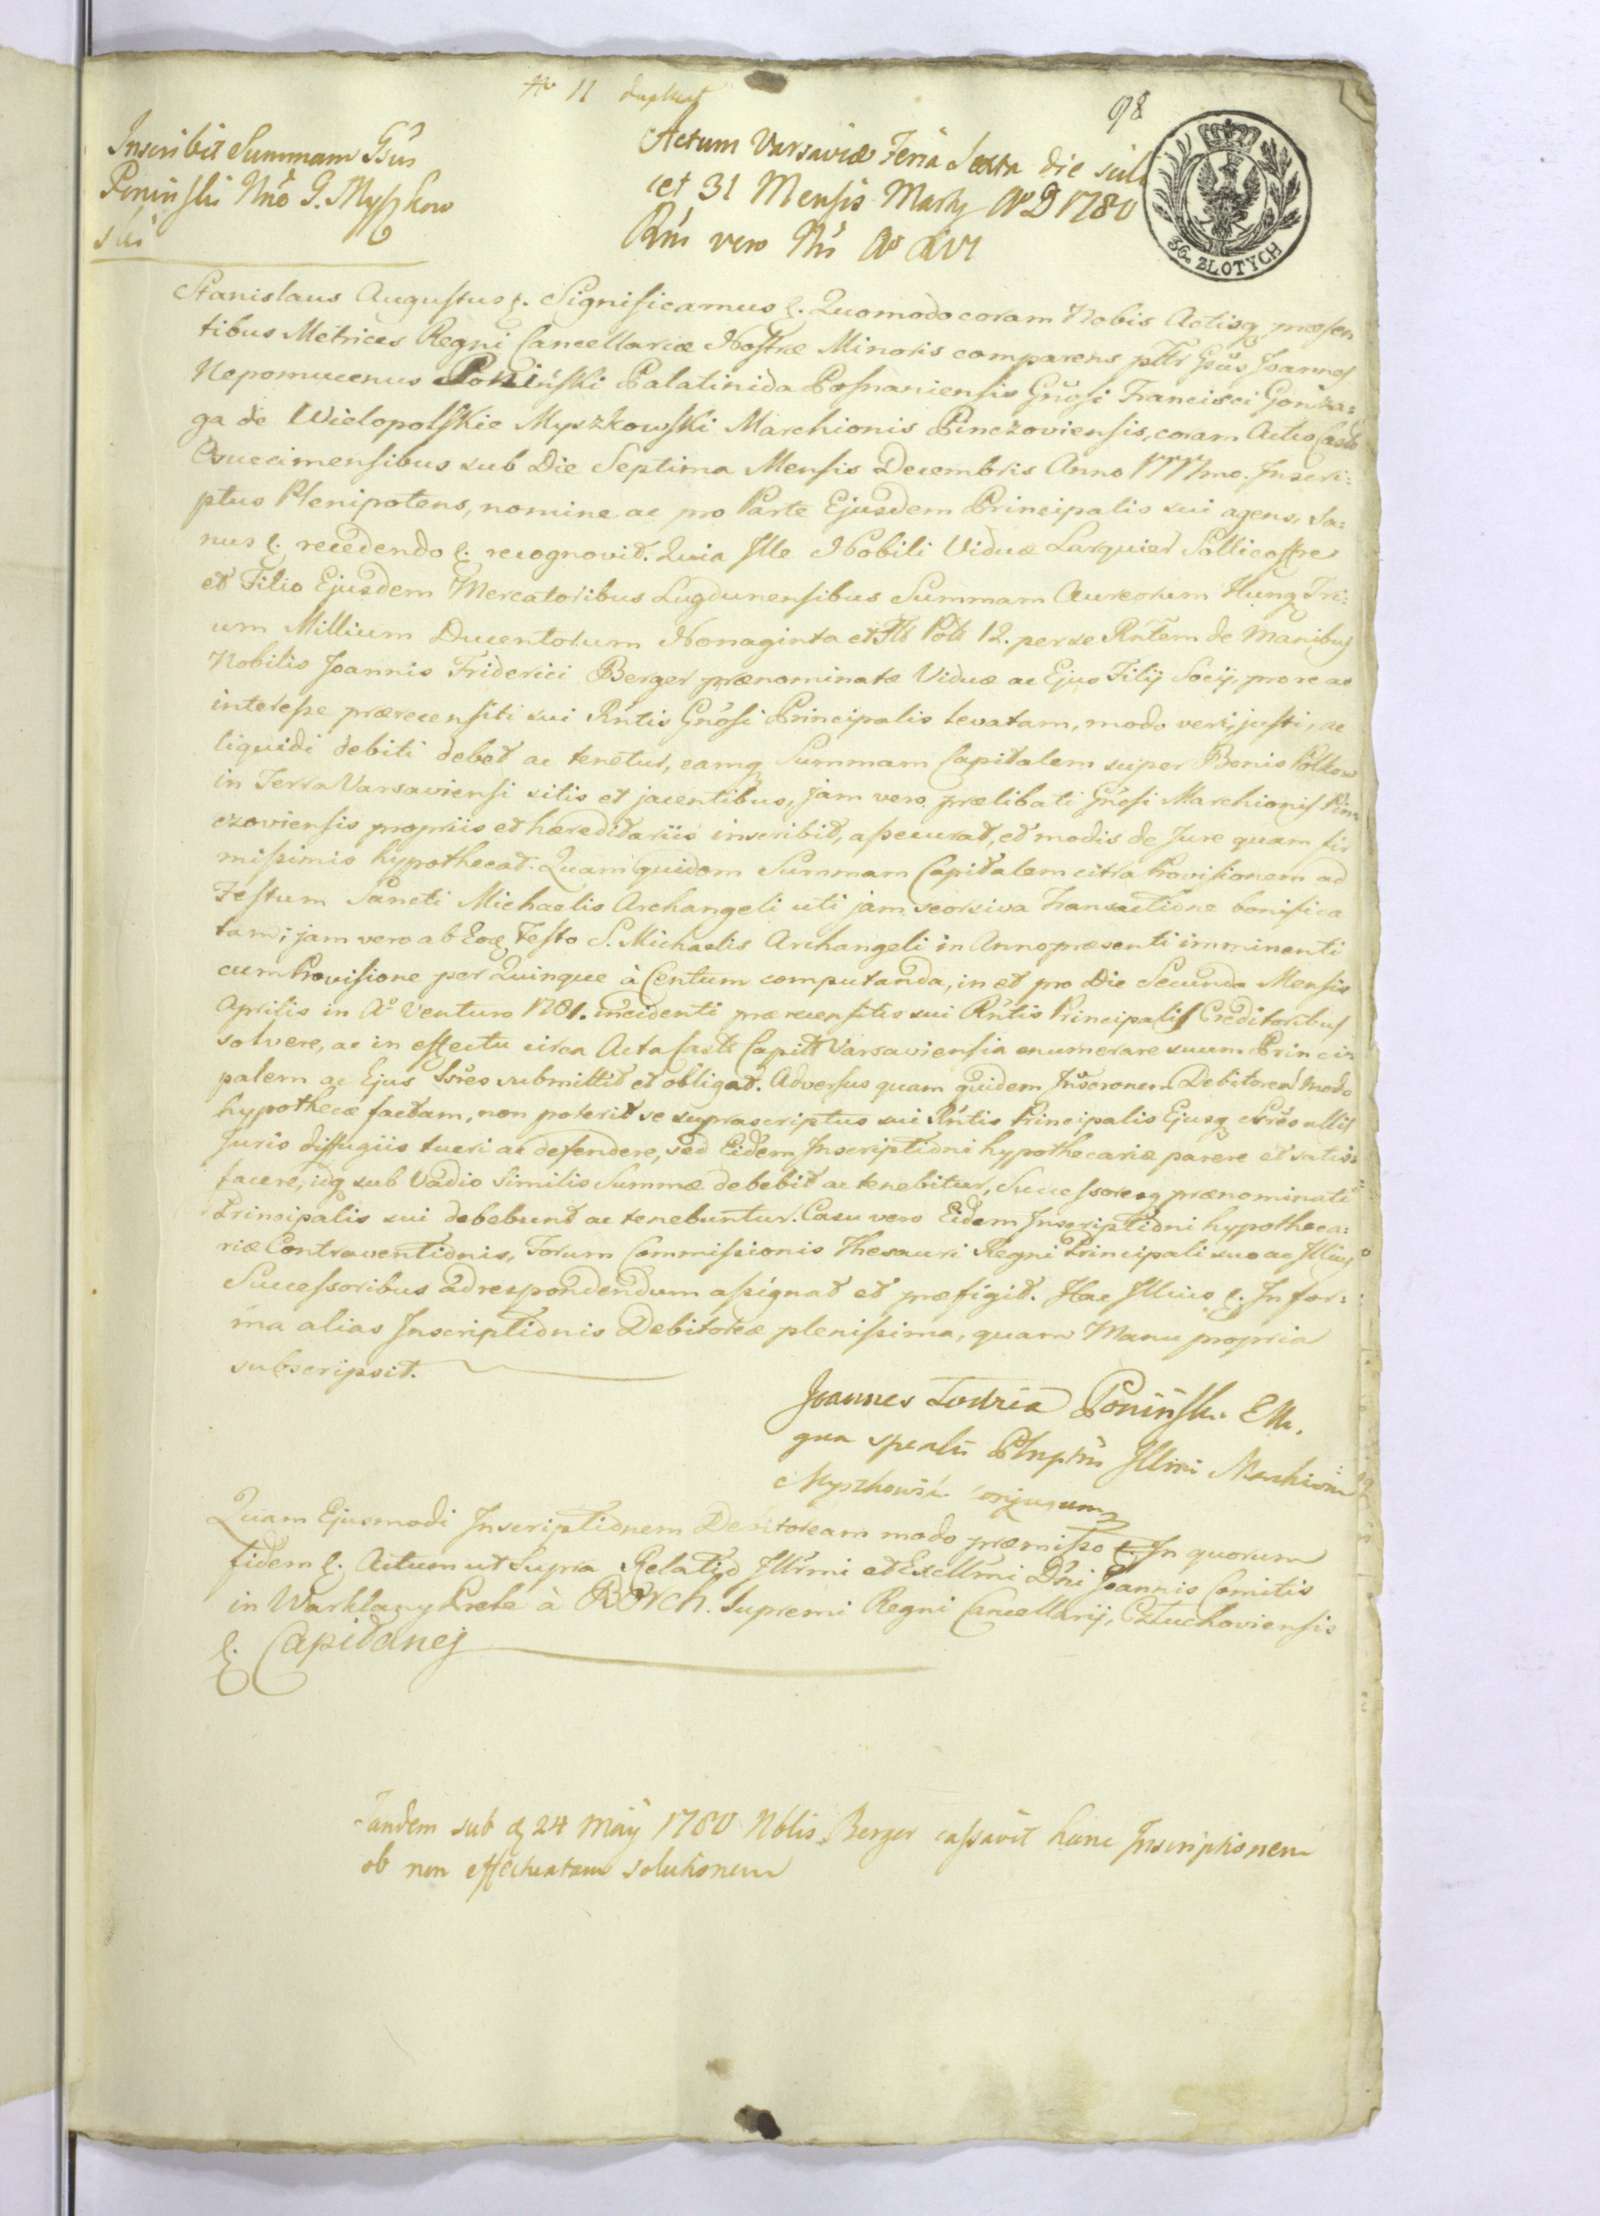 No 11 duplicat
98
Inscribit Summam Gsus
Poninski Nno G. Myszkow
ski
Actum Varsaviæ Feria Sexta die scili
cet 31 Mensis Martij Ao D 1780
Rni vero Nri Ao XVI
3 Gr. ZŁOTYCH
Stanislaus Augustus &. Significamus &. Quomodo coram Nobis Actisq præsen
tibus Metrices Regni Cancellariæ Nostræ Minoris comparens psltr Gsus Joannes
Nepomucenus Poniński Palatinida Posnaniensis Gnosi Francisci Gonza=
ga de Wielopolskie Myszkowski Marchionis Pinczoviensis, coram Actis Castr
Osviecimensibus sub Die Septima Mensis Decembris Anno 1777mo. Inscri=
ptus Plenipotens, nomine ac pro Parte Ejusdem Principalis sui agens, Sa=
nus &. recedendo &. recognovit. Quia Ille Nobili Viduæ Larquier Sollicoffre
et Filio Ejusdem Mercatoribus Lugdunensibus Summam Aureorum Hung Tri=
um Millium Ducentorum Nonaginta et Fls Pols 12. per se Rntem de Manibus
Nobilis Joannis Friderici Berger prænominatæ Viduæ ac Ejus Filij Socij, pro re ac
interesse præcensiti sui Rntis Gnosi Principalis levatam, modo veri, justi, ac
liquidi debiti debet ac tenetur, eamq Summam Capitalem super Bonis Polkow
in Terra Varsaviensi sitis et jacentibus, jam vero prælibati Gnosi Marchionis Pin
czoviensis propriis et hæreditariis inscribit, assecurat, et modis de Jure quam fir
missimis hypothecat. Quam quidem Summam Capitalem citra Provisionem ad
Festum Sancti Michaelis Archangeli uti jam seorsiva Transactione bonifica
tam; jam vero ab Eoq Festo S. Michaelis Archangeli in Anno præsenti imminenti
cum Provisione per Quinque à Centum computanda, in et pro Die Secunda Mensis
Aprilis in Ao Venturo 1781. incidenti præcensitis sui Rntis Principalis Creditoribus
solvere, ac in effectu circa Acta Castr Capitl Varsaviensia enumerare suum Princi
palem ac Ejus Ssres submittit et obligat. Adversus quam quidem Inscronem Debitoream modo
hypothecæ factam, non poterit se suprascriptus sui Rntis Principalis Ejusq Ssres ullis
Juris diffugiis tueri ac defendere, sed Eidem Inscriptioni hypothecariæ parere et satis=
facere, idq sub Vadio similis Summæ debebit ac tenebitur, Successoresq prænominati
Principalis sui debebunt ac tenebuntur. Casu vero Eidem Inscriptioni hypotheca=
riæ Contraventionis, Forum Commissionis Thesauri Regni Principali suo ac Illius
Successoribus ad respondendum assignat et præfigit. Hac Illius &. In for=
ma alias Inscriptionis Debitoreæ plenissima, quam Manu propria
subscripsit.
Joannes Lodzia Poninski
qua spcalis Plnptns Illmi Marchionis
Myszkowski
Quam Ejusmodi Inscriptionem Debitoream modo præmisso &. In quorum
fidem &. Actum ut Supra Relatio Illrmi et Excellmi Dni Joannis Comitis
in Warklany Prele à Borch. Supremi Regni Cancellarij, Człuchoviensis
&. Capitanej
Tandem sub d 24 Maij 1780 Nblis Berger cassavit hanc Inscriptionem
ob non effectuatam solutionem